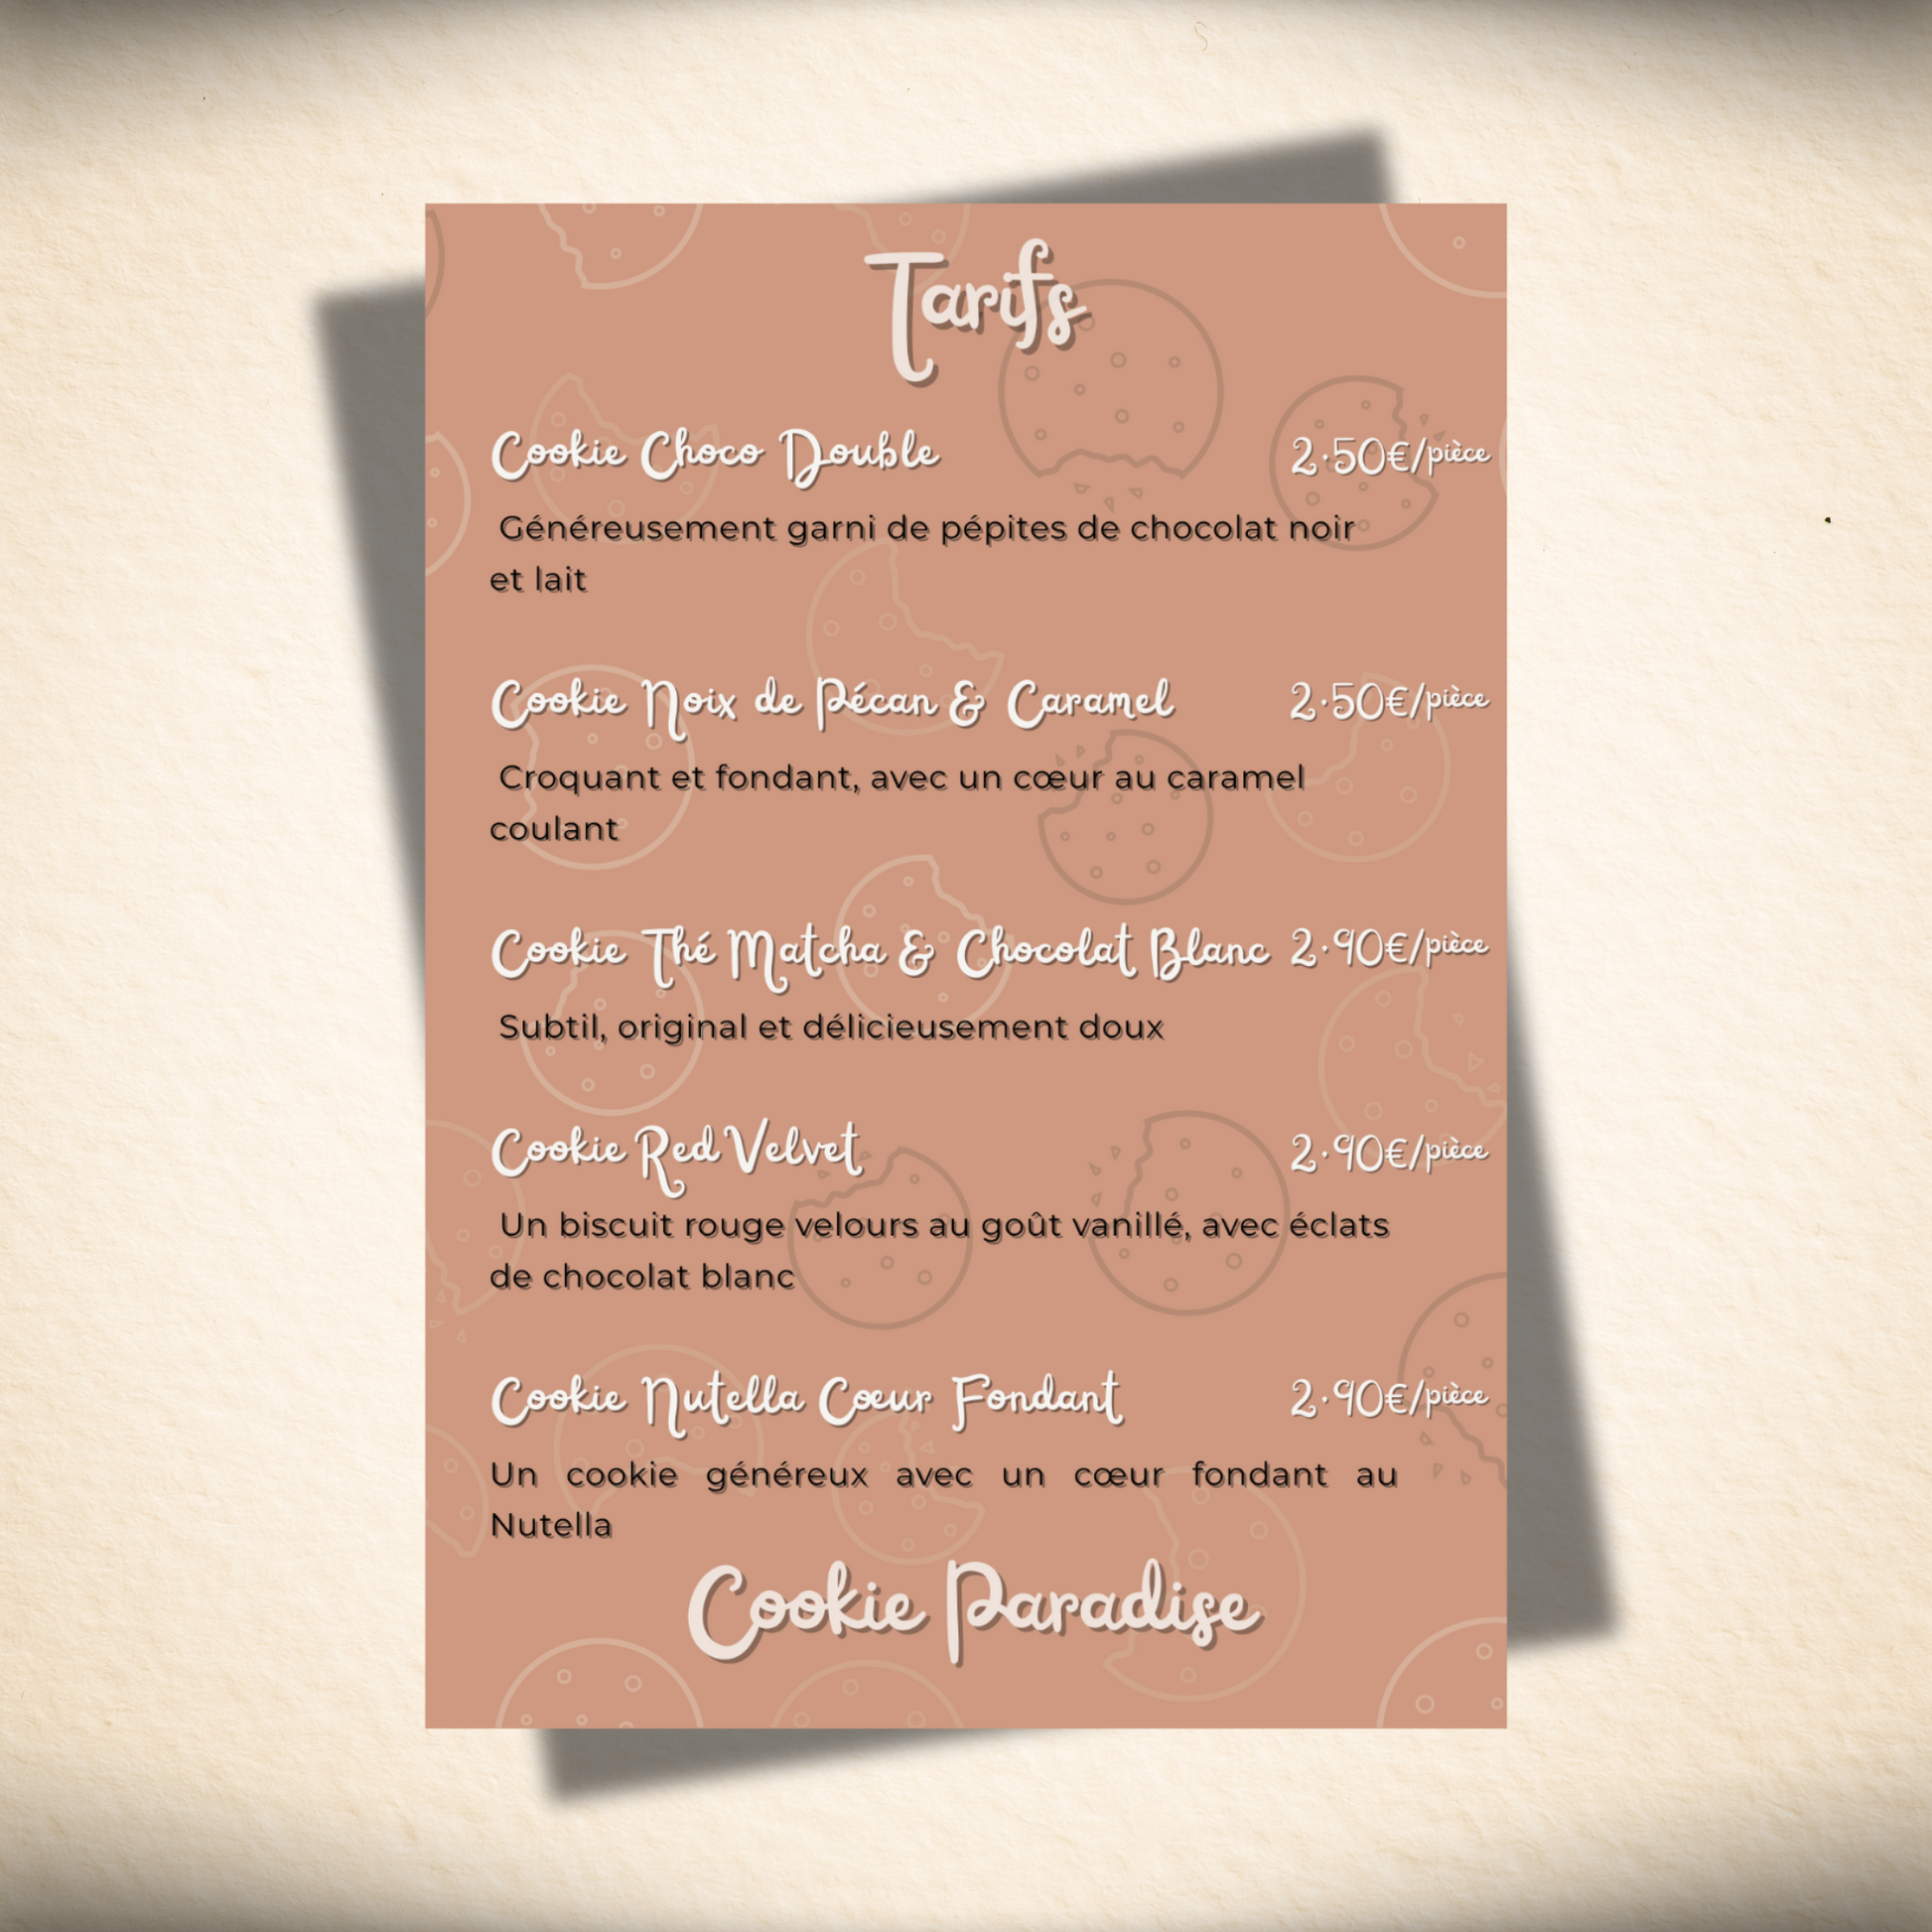 Tarifs
Cookie Choco Double 2.50€/pièce
Généreusement garni de pépites de chocolat noir
et lait
Cookie Noix de Pécan & Caramel 2.50€/pièce
Croquant et fondant, avec un cœur au caramel
coulant
Cookie Thé Matcha & Chocolat Blanc 2.90€/pièce
Subtil, original et délicieusement doux
Cookie Red Velvet 2.90€/pièce
Un biscuit rouge velours au goût vanillé, avec éclats
de chocolat blanc
Cookie Nutella Cœur Fondant 2.90€/pièce
Un cookie généreux avec un cœur fondant au
Nutella
Cookie Paradise